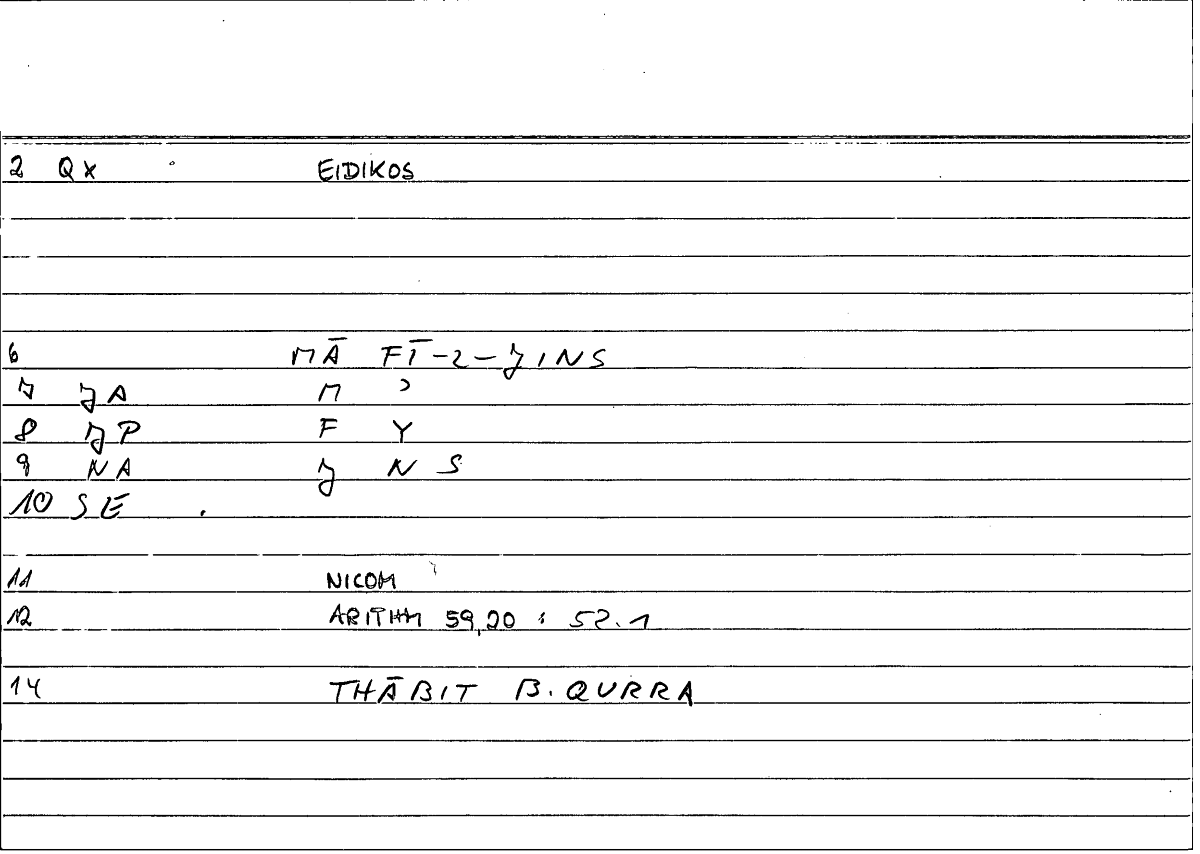 2 QX EIDIKOS
6 MĀ FĪ-2-JINS
7 JA M ʾ
8 JP F Y
9 NA J N S
10 SE .
11 NICOM
12 ARITHM 59,20 : 52.1
14 THĀBIT B. QURRA